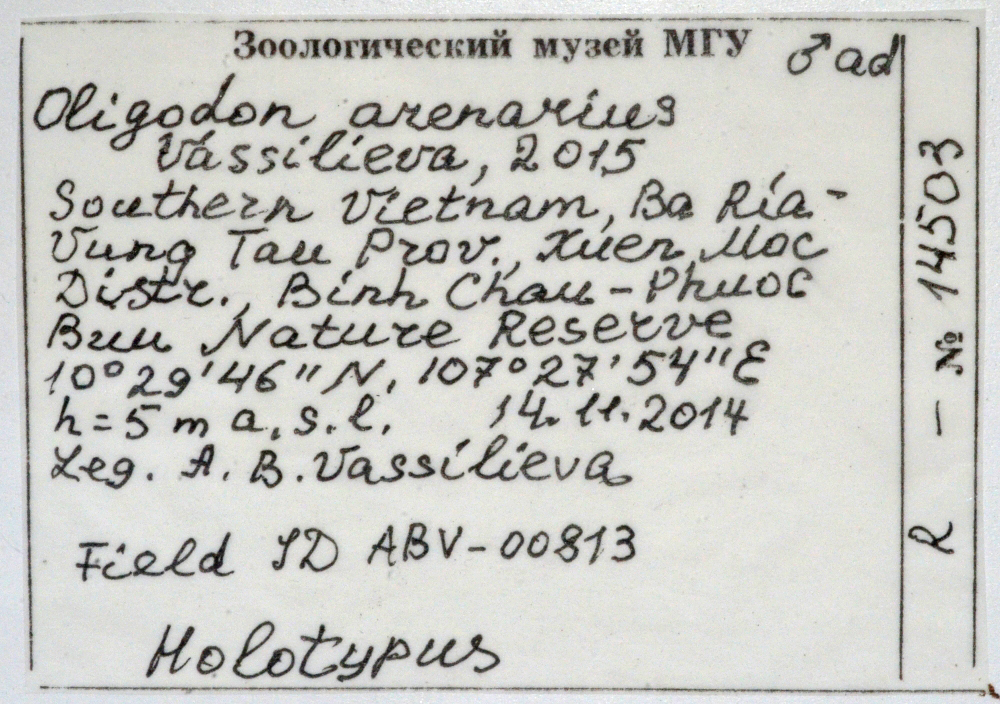 Зоологический музей МГУ ♂ ad
Oligodon arenarius
Vassilieva, 2015
Southern Vietnam, Ba Ria-
Vung Tau Prov., Xuen Moc
Distr., Binh Chau - Phuoc
Buu Nature Reserve
10°29'46"N, 107°27'54"E
h=5 m a.s.l. 14.11.2014
Leg. A. B. Vassilieva
Field ID ABV-00813
Holotypus
R — № 14503